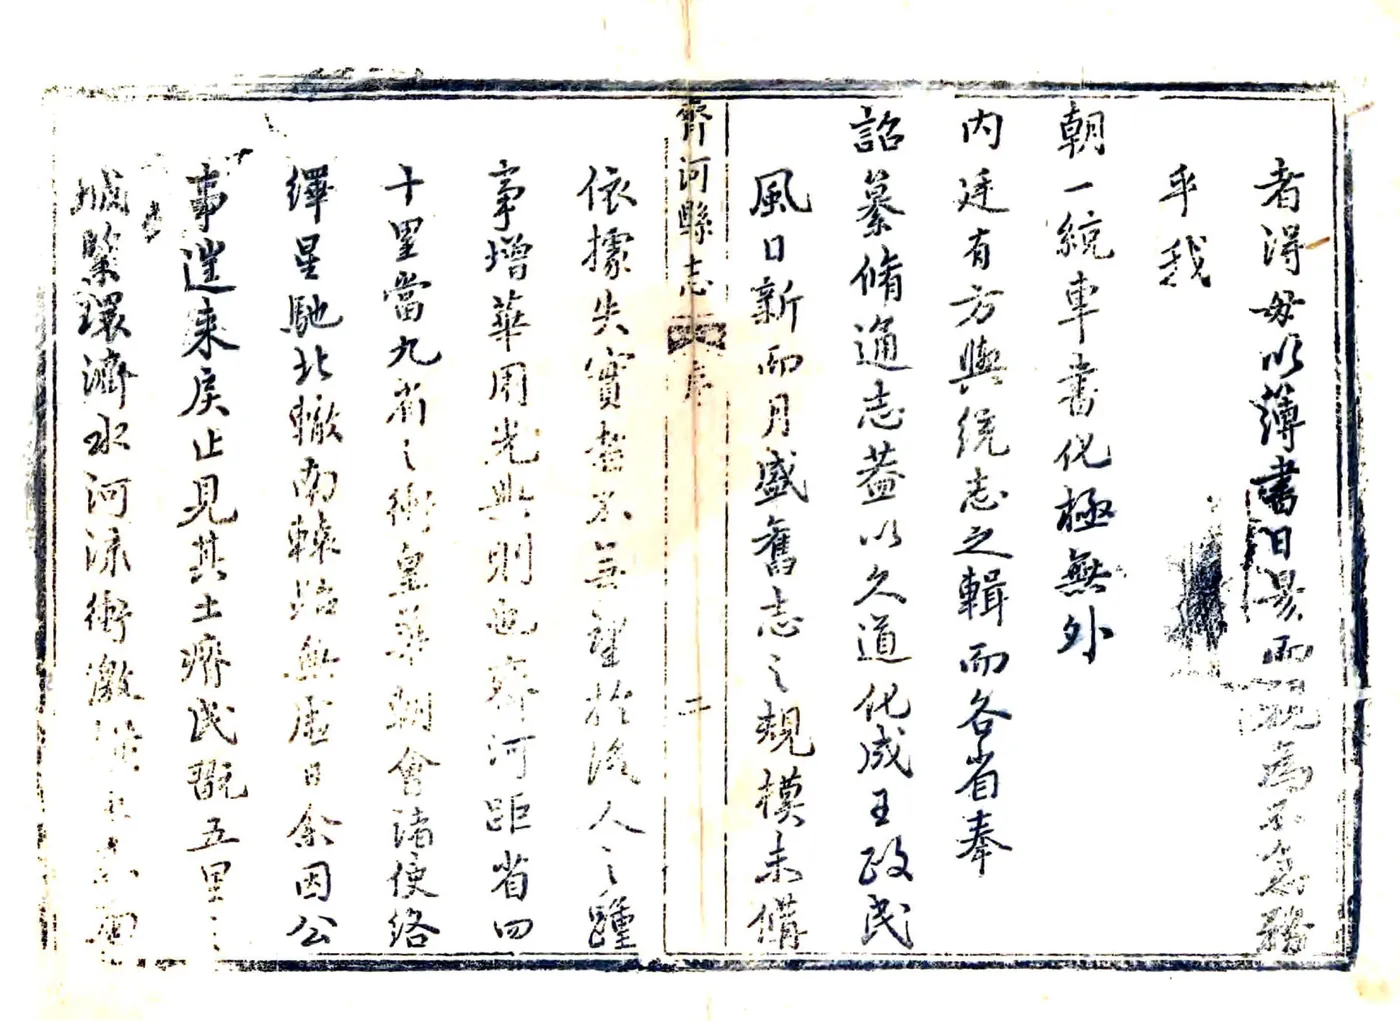 者得毋以薄書日晷而視為不急務
乎我
朝一統車書化極無外
內廷有方輿統志之輯而各省奉
詔纂脩通志葢以久道化成王政民
風日新而月盛舊志之規模未備
齊河縣志 序 二
依據失實者不無望於後人之踵
事增華用光典則也齊河距省四
十里當九省之衝皇華朝會諸使絡
繹星馳北轍南轅殆無虛日余因公
事遄來戾止見其土瘠民
五里
城臨環濟水河流衝激